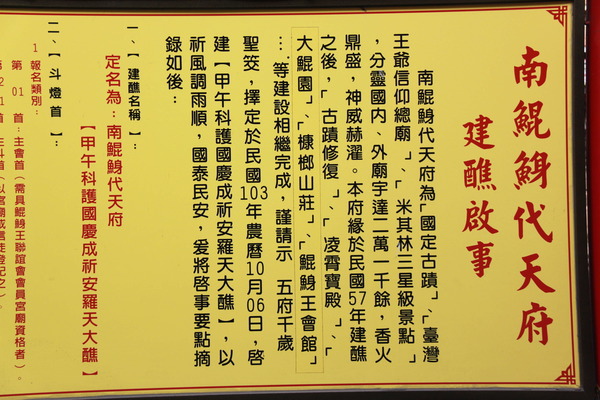 南鯤鯓代天府
建醮啟事
南鯤鯓代天府為「國定古蹟」、「臺灣
王爺信仰總廟」、「米其林三星級景點」
，分靈國內、外廟宇達二萬一千餘，香火
鼎盛，神威赫濯。本府緣於民國57年建醮
之後，「古蹟修復」、「凌霄寶殿」、「
大鯤園」、「槺榔山莊」、「鯤鯓王會館」
…等建設相繼完成，謹請示 五府千歲
聖筊，擇定於民國103年農曆10月06日，啓
建【甲午科護國慶成祈安羅天大醮】，以
祈風調雨順，國泰民安，爰將啓事要點摘
錄如後：
一、【建醮名稱】：
定名為：南鯤鯓代天府
【甲午科護國慶成祈安羅天大醮】
二、【斗燈首】：
1報名類別：
第 01 首：主會首（需具鯤鯓王聯誼會會員宮廟資格者）。